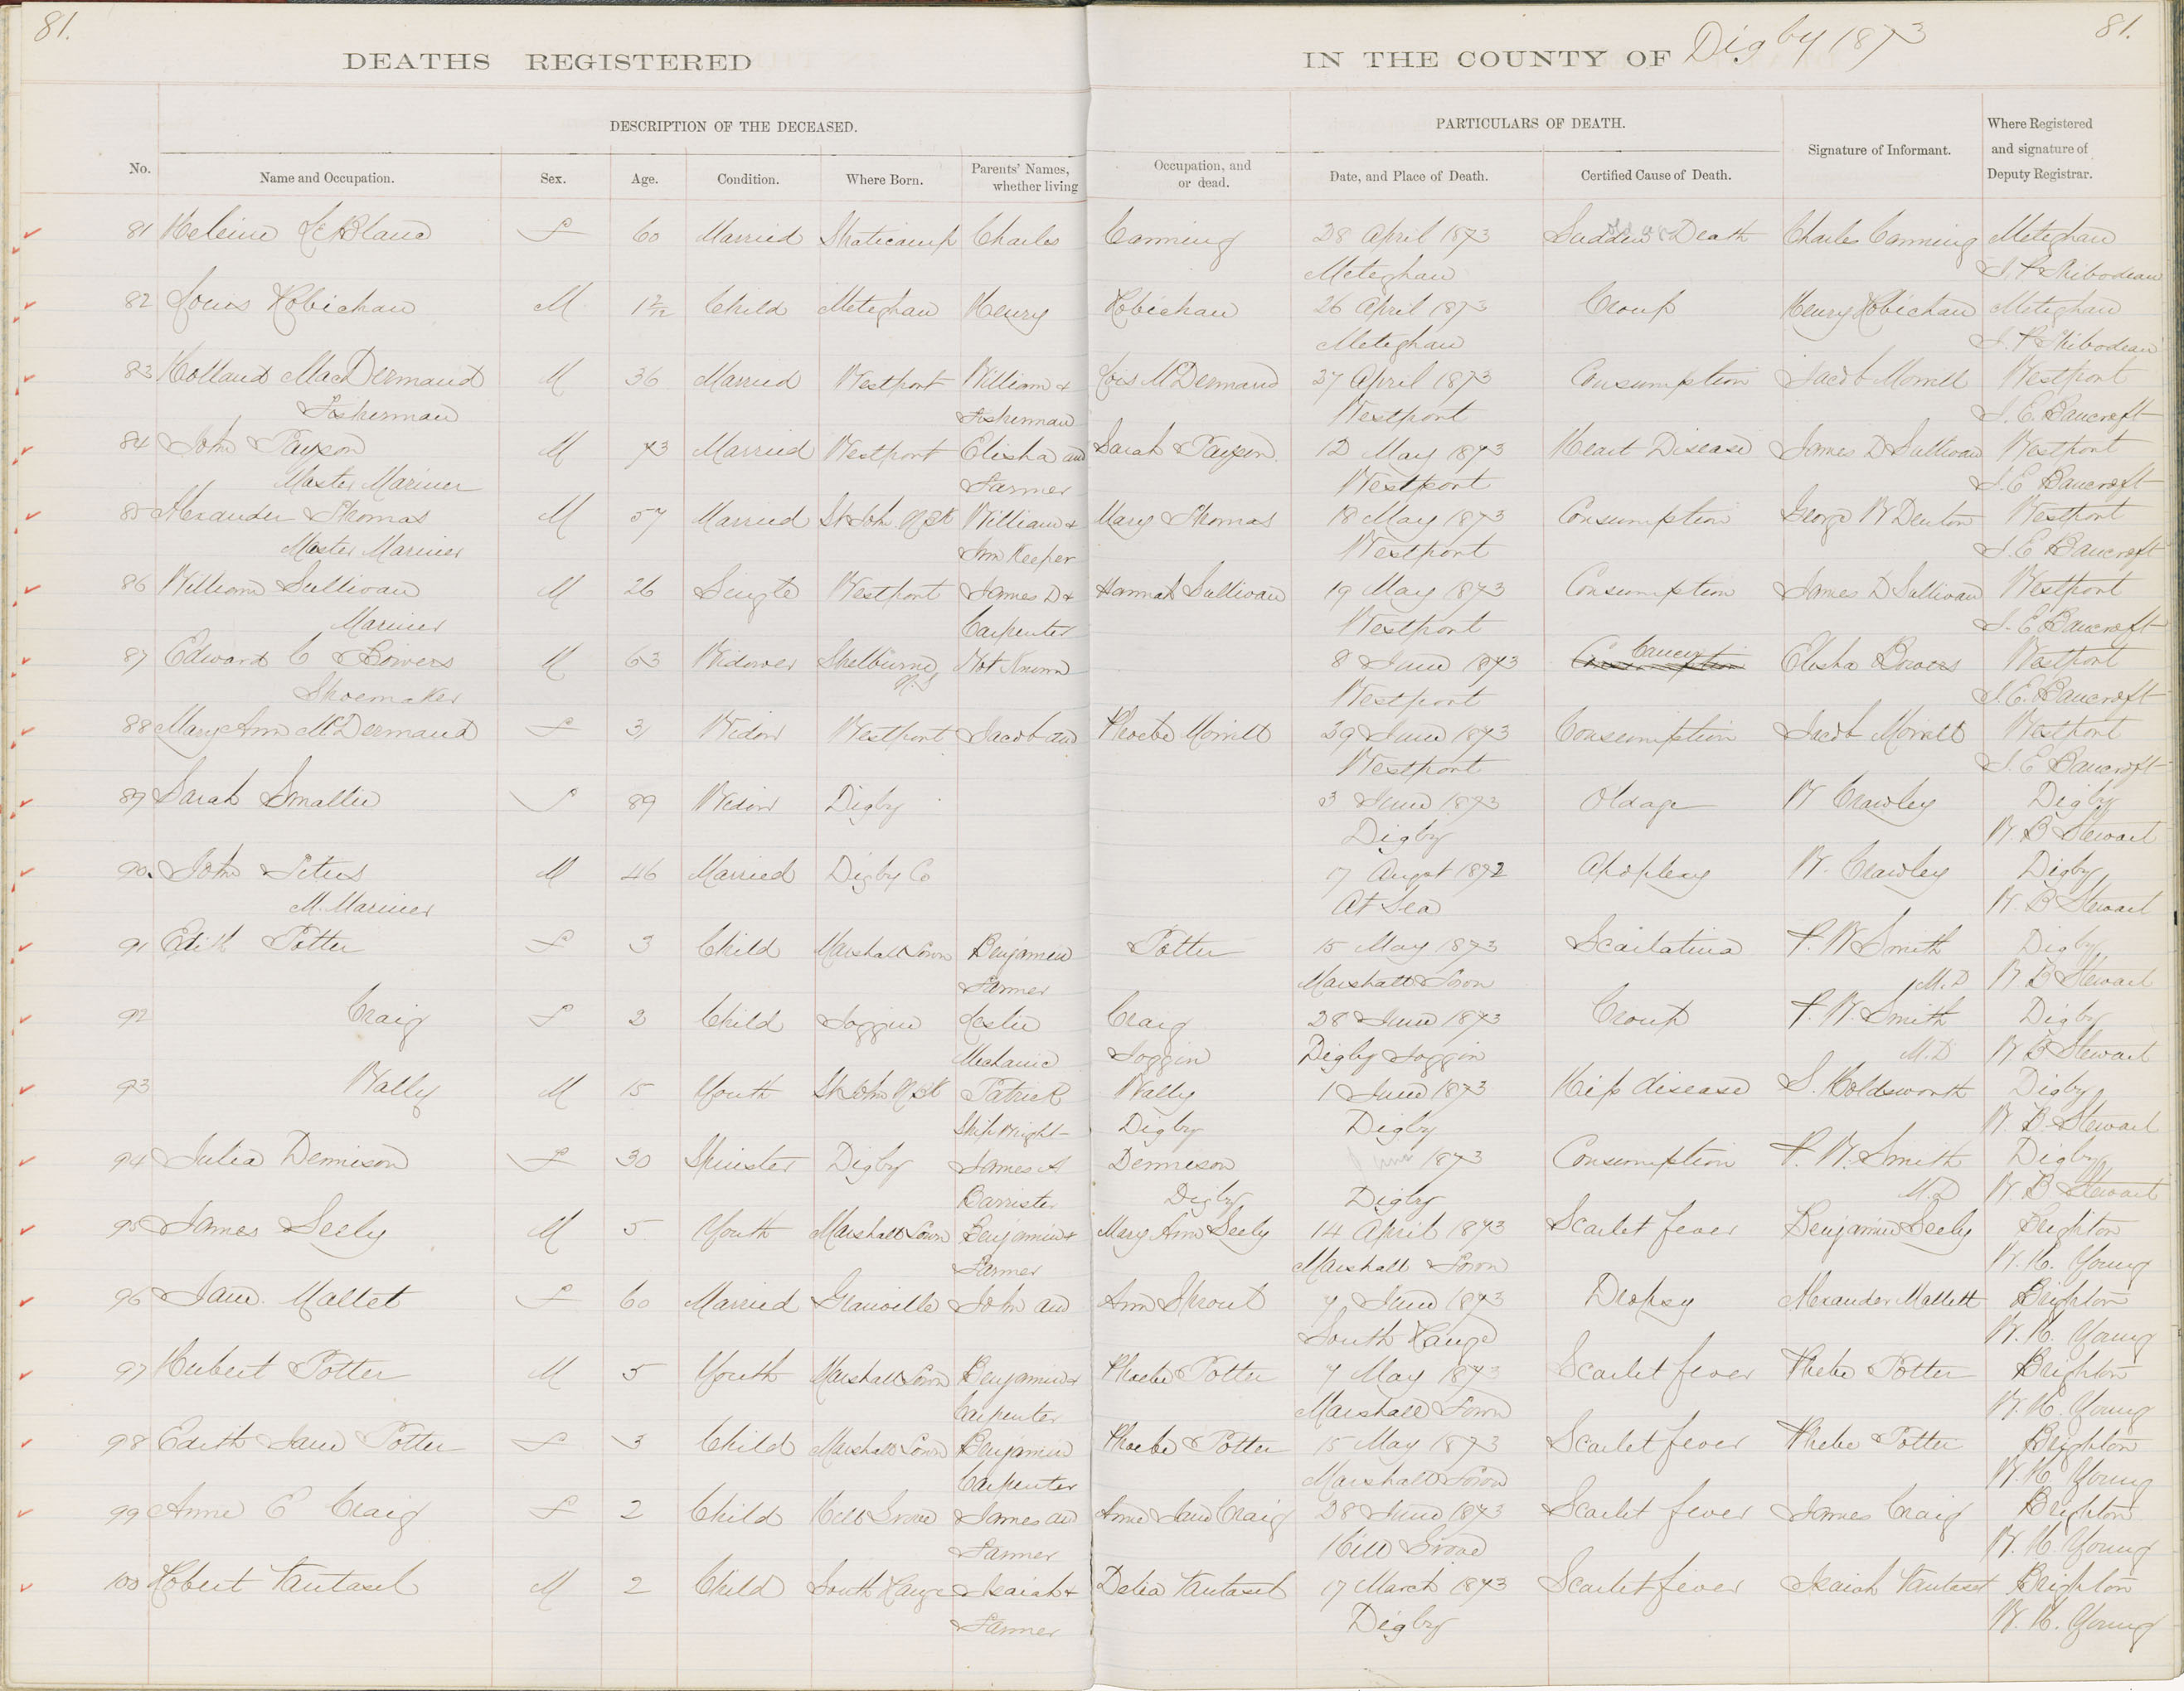 81.
DEATHS REGISTERED IN THE COUNTY OF Digby 1873
81.
DESCRIPTION OF THE DECEASED. PARTICULARS OF DEATH.
No. Name and Occupation. Sex. Age. Condition. Where Born. Parents' Names, Occupation, and whether living or dead. Date, and Place of Death. Certified Cause of Death. Signature of Informant. Where Registered and signature of Deputy Registrar.
81 LeBlanc f 60 Married Charles Canning 28 April 1873 Sudden Death Charles Canning Meteghan
Meteghan
82 Louis Robichau M 1 2/12 Child Meteghan Henry Robichau 26 April 1873 Croup Henry Robichau Meteghan
Meteghan
83 Holland MacDermaid M 36 Married Westport William & Lois McDermaid 27 April 1873 Consumption Jacob Morrell Westport
Fisherman Fisherman Westport J. E. Bancroft
84 John Payson M 73 Married Westport Elisha and Sarah Payson 12 May 1873 Heart Disease James D Sullivan Westport
Master Mariner Farmer Westport J. E Bancroft
85 Alexander Thomas M 57 Married St John N Bk William & Mary Thomas 18 May 1873 Consumption George W Denton Westport
Master Mariner Inn Keeper Westport J. E Bancroft
86 William Sullivan M 26 Single Westport James D & Hannah Sullivan 19 May 1873 Consumption James D Sullivan Westport
Mariner Carpenter Westport J. E Bancroft
87 Edward C Bowers M 63 Widower Shelburne N.S Not Known 8 June 1873 Consumption Cancer Elisha Bowers Westport
Shoemaker Westport J. E. Bancroft
88 Mary Ann McDermaid f 31 Widow Westport Jacob and Phoebe Morrell 29 June 1873 Consumption Jacob Morrell Westport
Westport J. E Bancroft
89 Sarah Smallie f 89 Widow Digby 3 June 1873 Old age W Crawley Digby
Digby W. B Stewart
90. John Titus M 46 Married Digby Co 17 August 1872 Apoplexy W. Crawley Digby
M. Mariner At Sea W. B Stewart
91 Edith Potter f 3 Child Marshall Town Benjamin Potter 15 May 1873 Scarlatina P. W Smith Digby
Farmer Marshall Town M.D W B Stewart
92 Craig f 2 Child Joggin Leslie Craig 28 June 1873 Croup P. W. Smith Digby
Mechanic Joggin Digby Joggin M.D W B Stewart
93 Wally M 15 Youth St John N Bk Patrick Wally 1 June 1873 Hip disease S. Holdsworth Digby
Ship Wright Digby Digby W. B Stewart
94 Julia Dennison f 30 Spinster Digby James A Dennison June 1873 Consumption P. W. Smith Digby
Barrister Digby Digby M.D W B Stewart
95 James Seely M 5 Youth Marshall Town Benjamin & Mary Ann Seely 14 April 1873 Scarlet fever Benjamin Seely Brighton
Farmer Marshall Town W. H. Young
96 Jane Mallet f 60 Married Granville John and Ann Sprout 7 June 1873 Dropsy Alexander Mallett Brighton
South Range W. H. Young
97 Hubert Potter M 5 Youth Marshall Town Benjamin & Phoebe Potter 7 May 1873 Scarlet fever Phebe Potter Brighton
Carpenter Marshall Town W. H. Young
98 Edith Jane Potter f 3 Child Marshall Town Benjamin Phoebe Potter 15 May 1873 Scarlet fever Phebe Potter Brighton
Carpenter Marshall Town W. H. Young
99 Annie E Craig f 2 Child Hill Grove James and Anne Jane Craig 28 June 1873 Scarlet fever James Craig Brighton
Farmer Hill Grove W. H. Young
100 Robert Vantasel M 2 Child South Range Isaiah & Delia Vantasel 17 March 1873 Scarlet fever Isaiah Vantasel Brighton
Farmer Digby W. H. Young